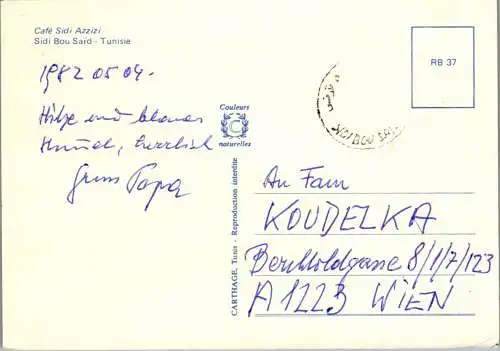 Café Sidi Azzizi
Sidi Bou Saïd - Tunisie
RB 37
1982 05 04.
Hitze und blauer
Himmel, herrlich
Gruss Papa
Couleurs
C
naturelles
CARTHAGE, Tunis - Reproduction interdite
SIDI BOU SAID
An Fam
KOUDELKA
Berchtoldgasse 8/1/7/123
A 1223 WIEN